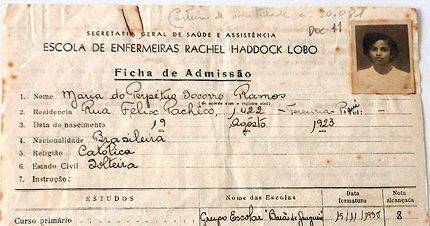 Carteira de identidade n. 30.081
Doc 11
SECRETARIA GERAL DE SAÚDE E ASSISTÊNCIA
ESCOLA DE ENFERMEIRAS RACHEL HADDOCK LOBO
Ficha de Admissão
1. Nome Maria do Perpétuo Socorro Ramos
(de acordo com o registro civil)
2. Residencia Rua Felix Pacheco, 1422 - Teresina Piauí Tel: -
3. Data do nascimento 19 Agôsto 1923
4. Nacionalidade Brasileira
5. Religião Católica
6. Estado Civil Solteira
7. Instrução:
ESTUDOS Nome das Escolas Data formatura Nota alcançada
Curso primário Grupo Escolar "Barão de Gurguéia" 15/11/1935 8